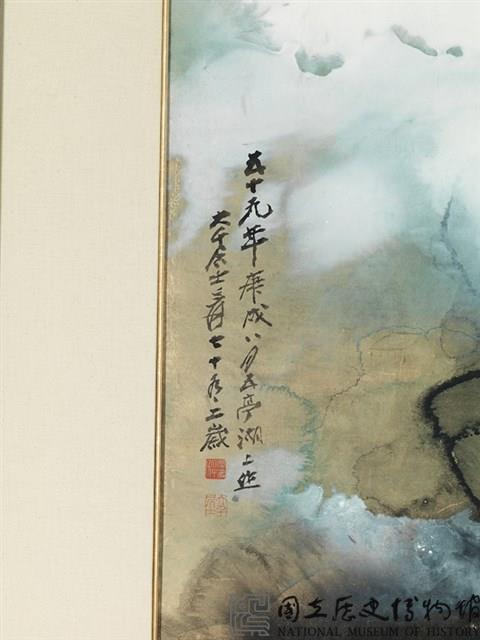 五十九年庚戌八月五亭湖上作
大千居士爰七十有二歲
國立歷史博物館
NATIONAL MUSEUM OF HISTORY